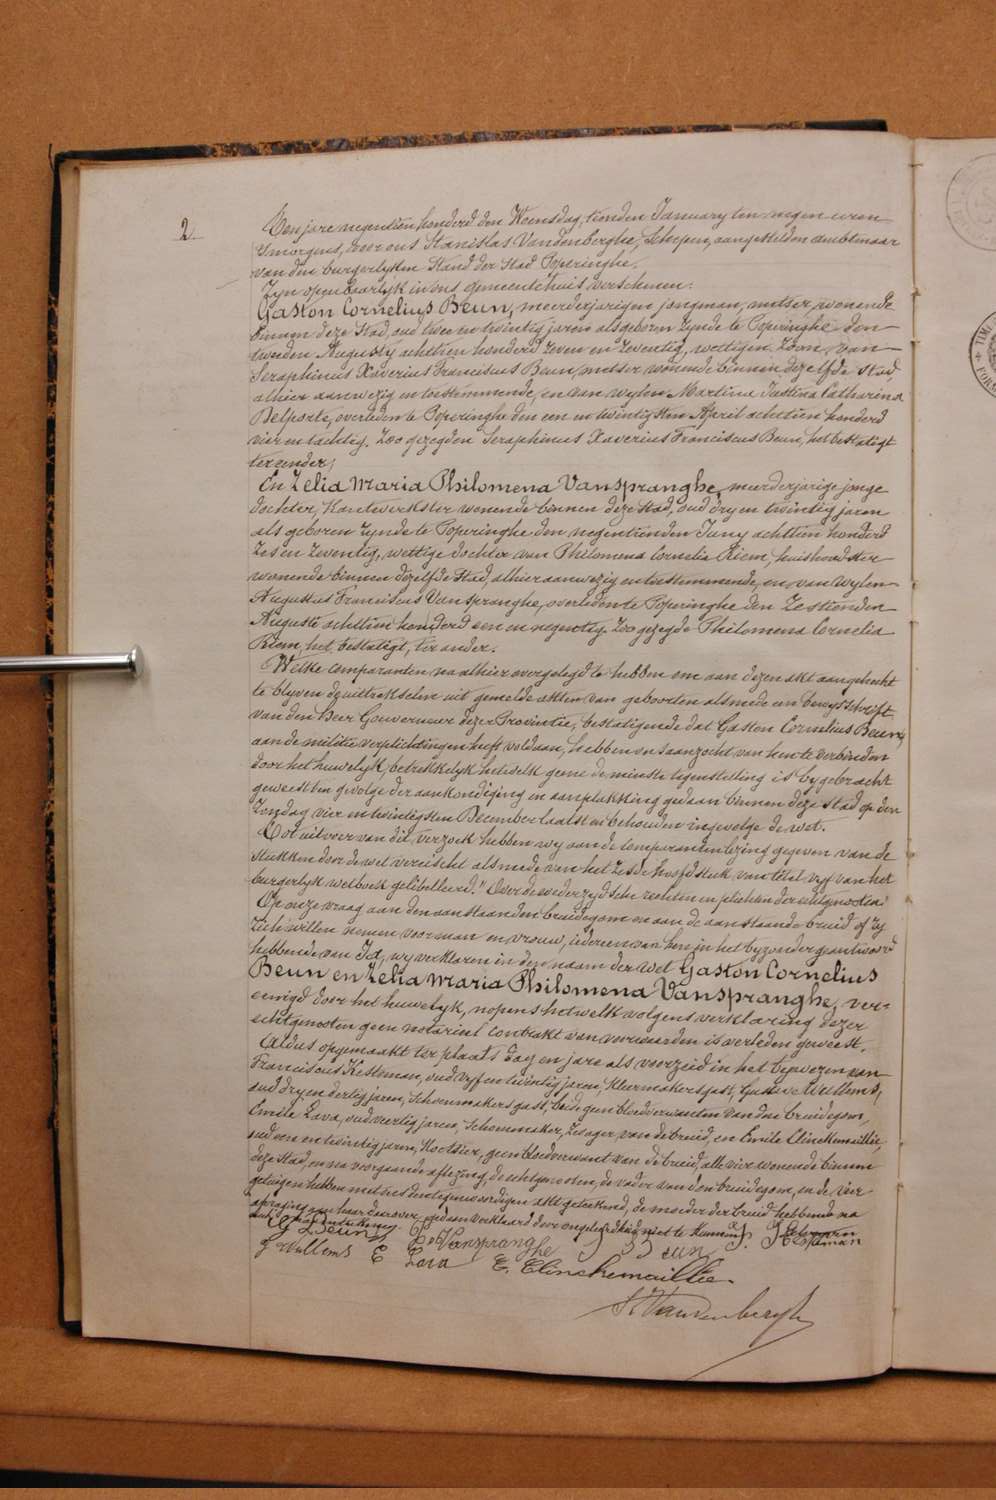 2
Ten jare negentien honderd den Woensdag, tienden January ten negen uren
's morgens, voor ons Stanislas Vandenberghe, Schepen, aangestelden ambtenaar
van den burgerlyken Stand der Stad Poperinghe.
Zyn openbaarlyk in ons gemeentehuis verschenen:
Gaston Cornelius Beun, meerderjarigen jongman, metser, wonende
binnen deze Stad, oud twee en twintig jaren als geboren zynde te Poperinghe den
tweeden Augusty achttien honderd zeven en zeventig, wettigen zoon van
Seraphinus Xaverius Franciscus Beun, metser wonende binnen dezelfde stad,
alhier aanwezig en toestemmende, en van wylen Martina Justina Catharina
Delporte, overleden te Poperinghe den een en twintigsten April achttien honderd
vier en tachtig. Zoo gezegden Seraphinus Xaverius Franciscus Beun, het bestatigt
ter eender;
En Zelia Maria Philomena Vanspranghe, meerderjarige jonge
dochter, kantwerkster wonende binnen deze Stad, oud dry en twintig jaren
als geboren zynde te Poperinghe den negentienden Juny achttien honderd
zes en zeventig, wettige dochter van Philomena Cornelia Riem, huishoudster
wonende binnen dezelfde Stad, alhier aanwezig en toestemmende, en van wylen
Augustus Franciscus Vanspranghe, overleden te Poperinghe den zestienden
Auguste achttien honderd een en negentig. Zoo gezegde Philomena Cornelia
Riem, het bestatigt, ter ander.
Welke comparanten na alhier overgelegd te hebben om aan dezen akt aangehecht
te blyven de uittrekselen uit gemelde akten van geboorten alsmede een bewysschrift
van den Heer Gouverneur dezer Provintie, bestatigende dat Gaston Cornelius Beun,
aan de militie verplichtingen heeft voldaan, hebben ons aanzocht van hen te verbinden
door het huwelyk, betrekkelyk hetwelk geene de minste tegenstelling is bygebracht
geweest ten gevolge der aankondiging en aanplakking gedaan binnen deze stad op den
Zondag vier en twintigsten December laatst en behouden ingevolge de wet.
Tot uitvoer van dit verzoek hebben wy aan de comparanten lezing gegeven van de
stukken door de wet vereischt alsmede van het zesde hoofdstuk van titel vyf van het
burgerlyk wetboek gelibelleerd: "Over de wederzydsche rechten en plichten der echtgenooten."
Op onze vraag aan den aanstaanden bruidegom en aan de aanstaande bruid of zy
zich willen nemen voor man en vrouw, iedereen van hen in het byzonder geantwoord
hebbende van Ja, wy verklaren in den naam der wet Gaston Cornelius
Beun en Zelia Maria Philomena Vanspranghe, ver-
eenigd door het huwelyk, nopens hetwelk volgens verklaring dezer
echtgenooten geen notarieel contrakt van voorwaarden is verleden geweest.
Aldus opgemaakt ter plaats dag en jare als voorzeid in het bywezen van
Franciscus Kesteman, oud vyf en twintig jaren, kleermakersgast, Gustave Willems,
oud dry en dertig jaren, schoenmakers gast, beide geen bloedverwanten van den bruidegom,
Emile Lava, oud veertig jaren, Schoenmaker, zwager van de bruid, en Emile Clinckemaillie,
oud een en twintig jaren, Hovenier, geen bloedverwant van de bruid, alle vier wonende binnen
deze Stad, en na voorgaande aflezing, de echtgenooten, de vader van den bruidegom, en de vier
getuigen hebben met ons den tegenwoordigen akt geteekend, de moeder der bruid hebbende na
afvraging van haar daarover gedaan verklaard door ongeleerdheid niet te kunnen
G Beun Z Vanspranghe S Beun F. Kesteman
G Willems E Lava E. Clinckemaillie.
St Vandenberghe